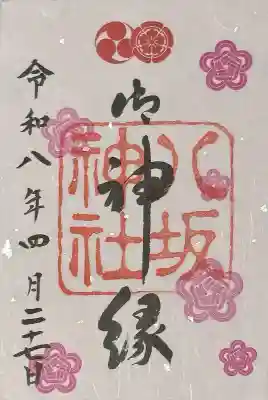 御神縁
八坂
神社
令和八年四月二十七日